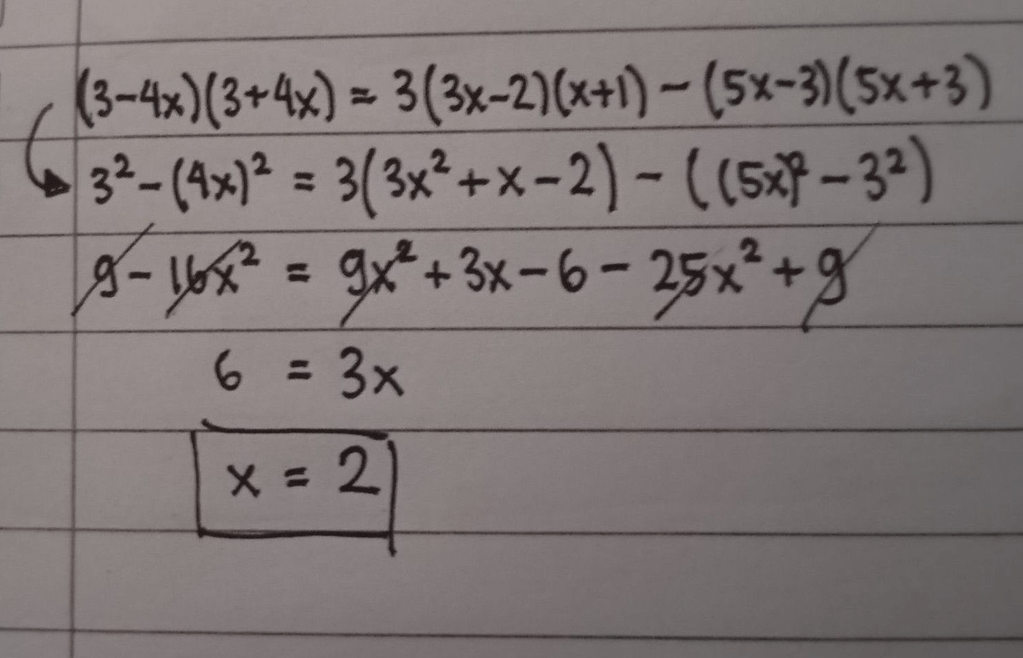 (3-4x)(3+4x) = 3(3x-2)(x+1) - (5x-3)(5x+3)
3² - (4x)² = 3(3x² + x - 2) - ((5x)² - 3²)
9 - 16x² = 9x² + 3x - 6 - 25x² + 9
6 = 3x
x = 2